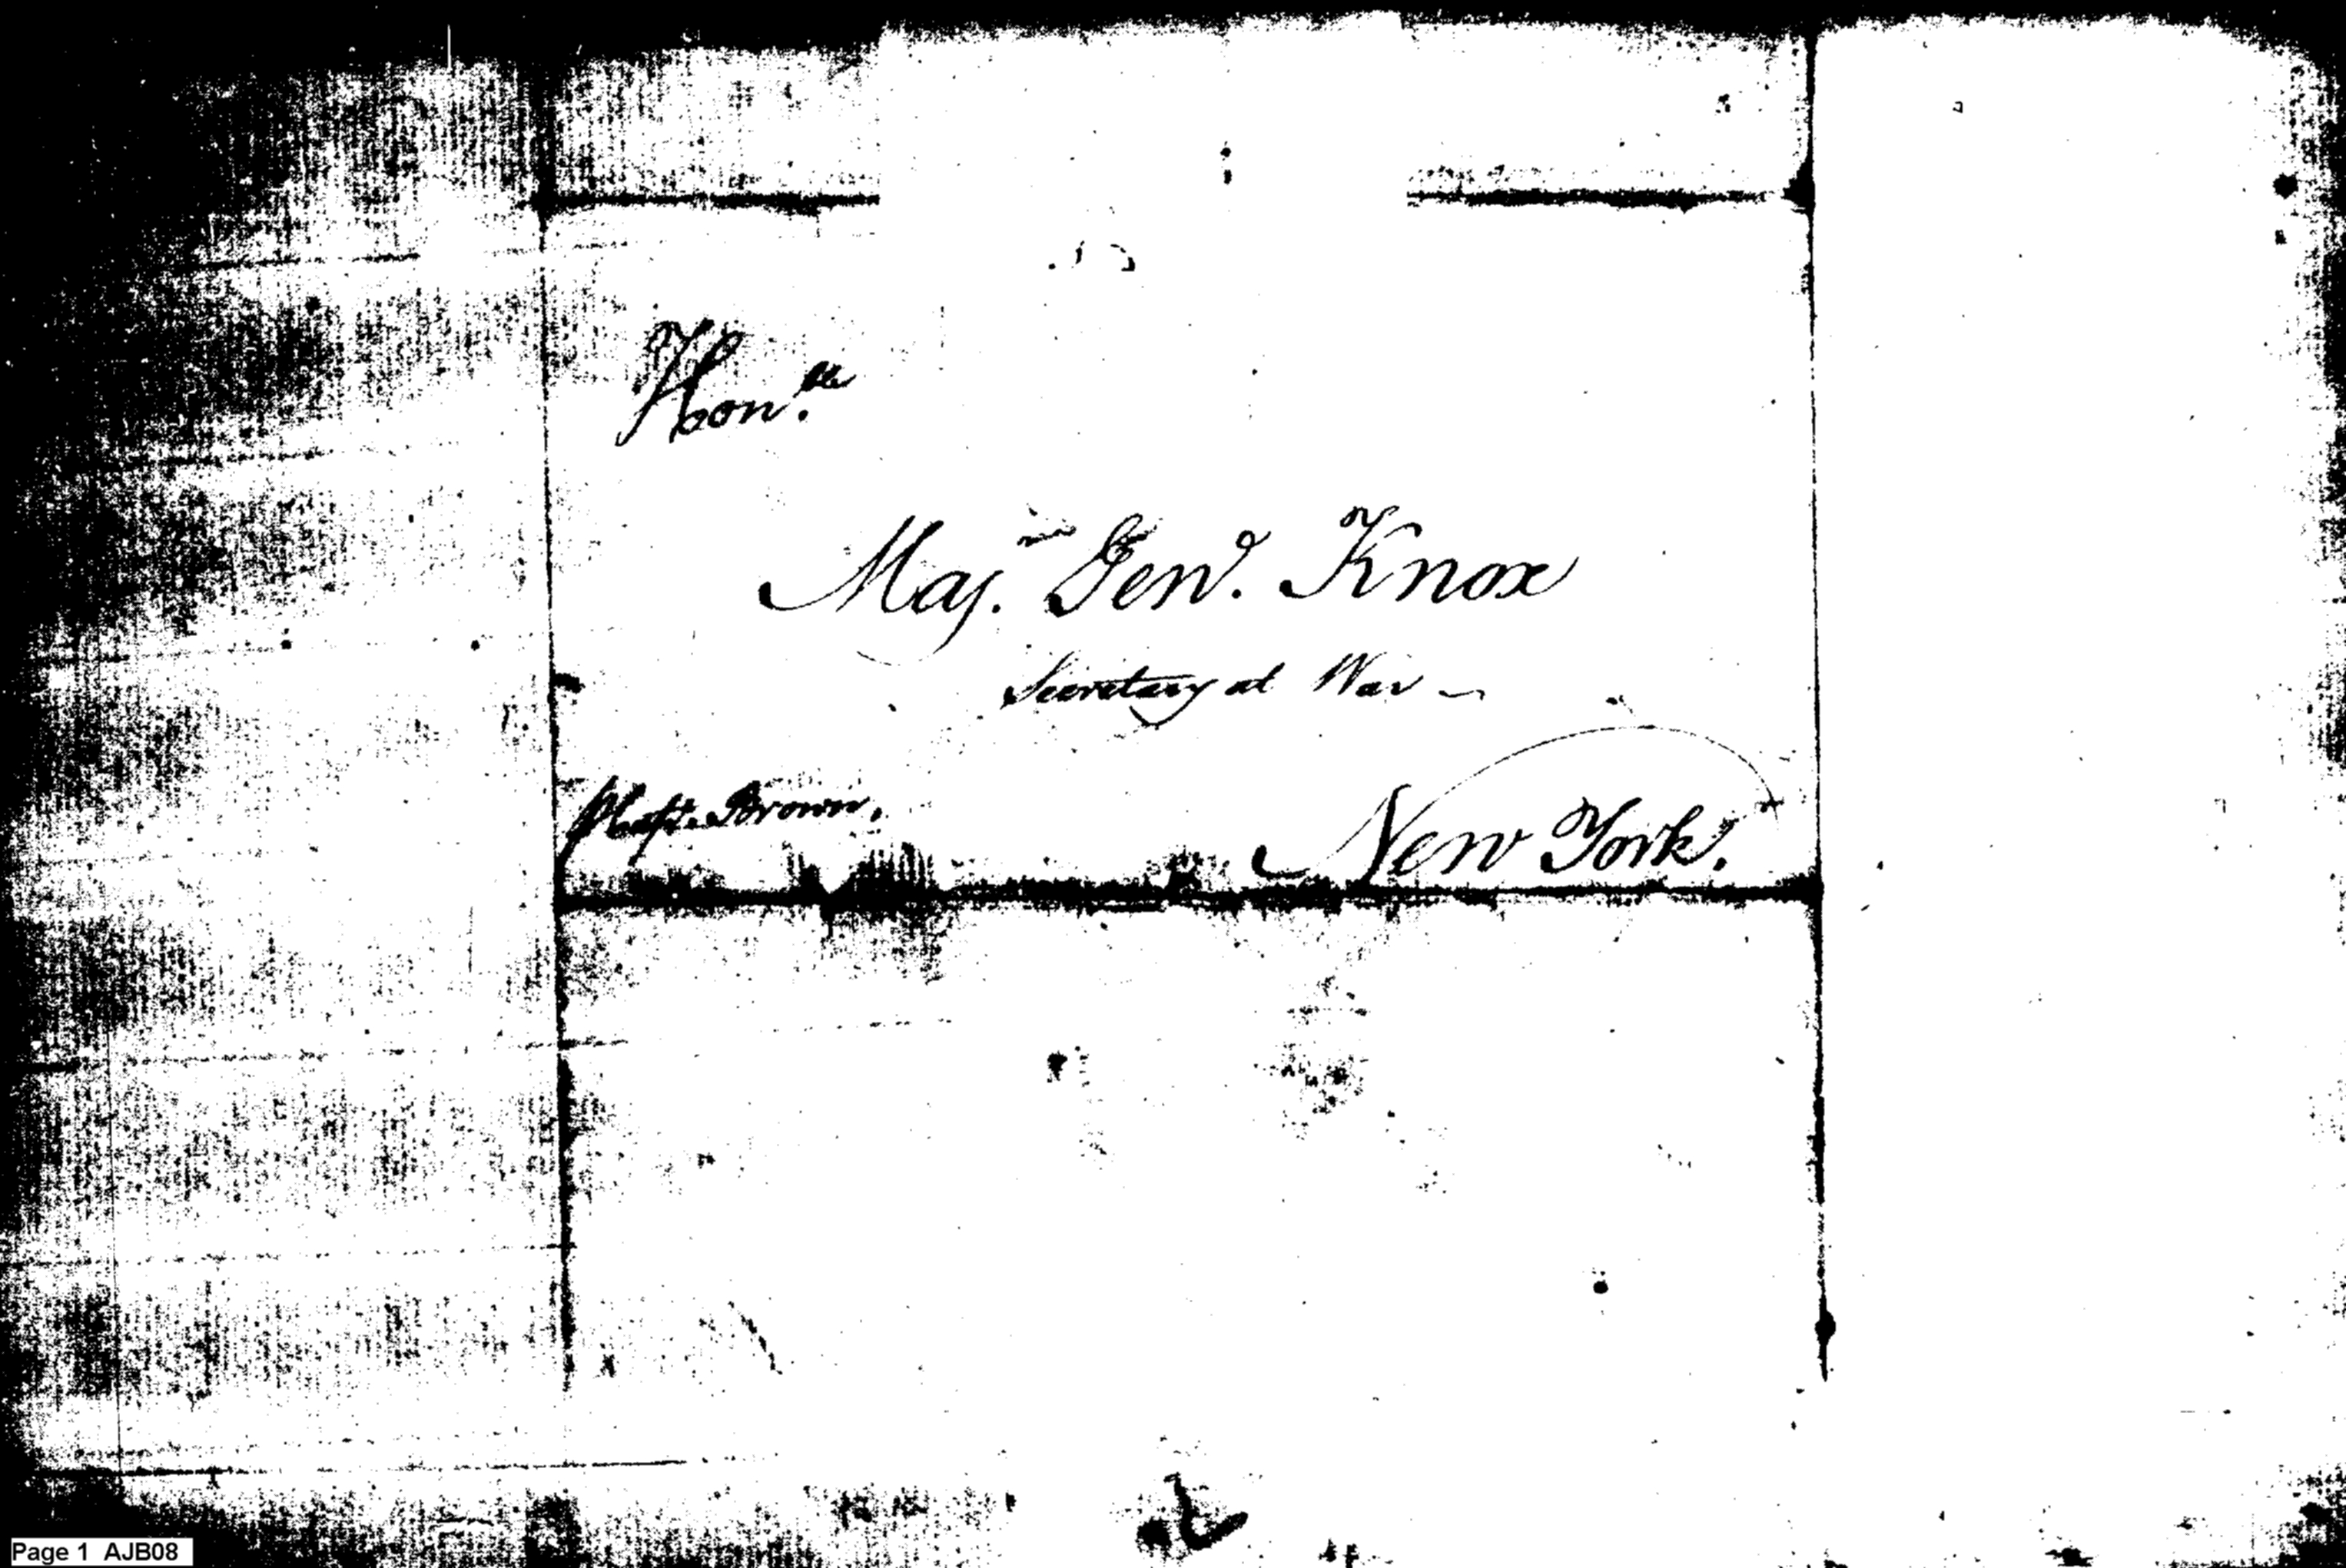 Hon.ble
Maj. Genl. Knox
Secretary at War
Capt. Brown.
New York.
Page 1 AJB08